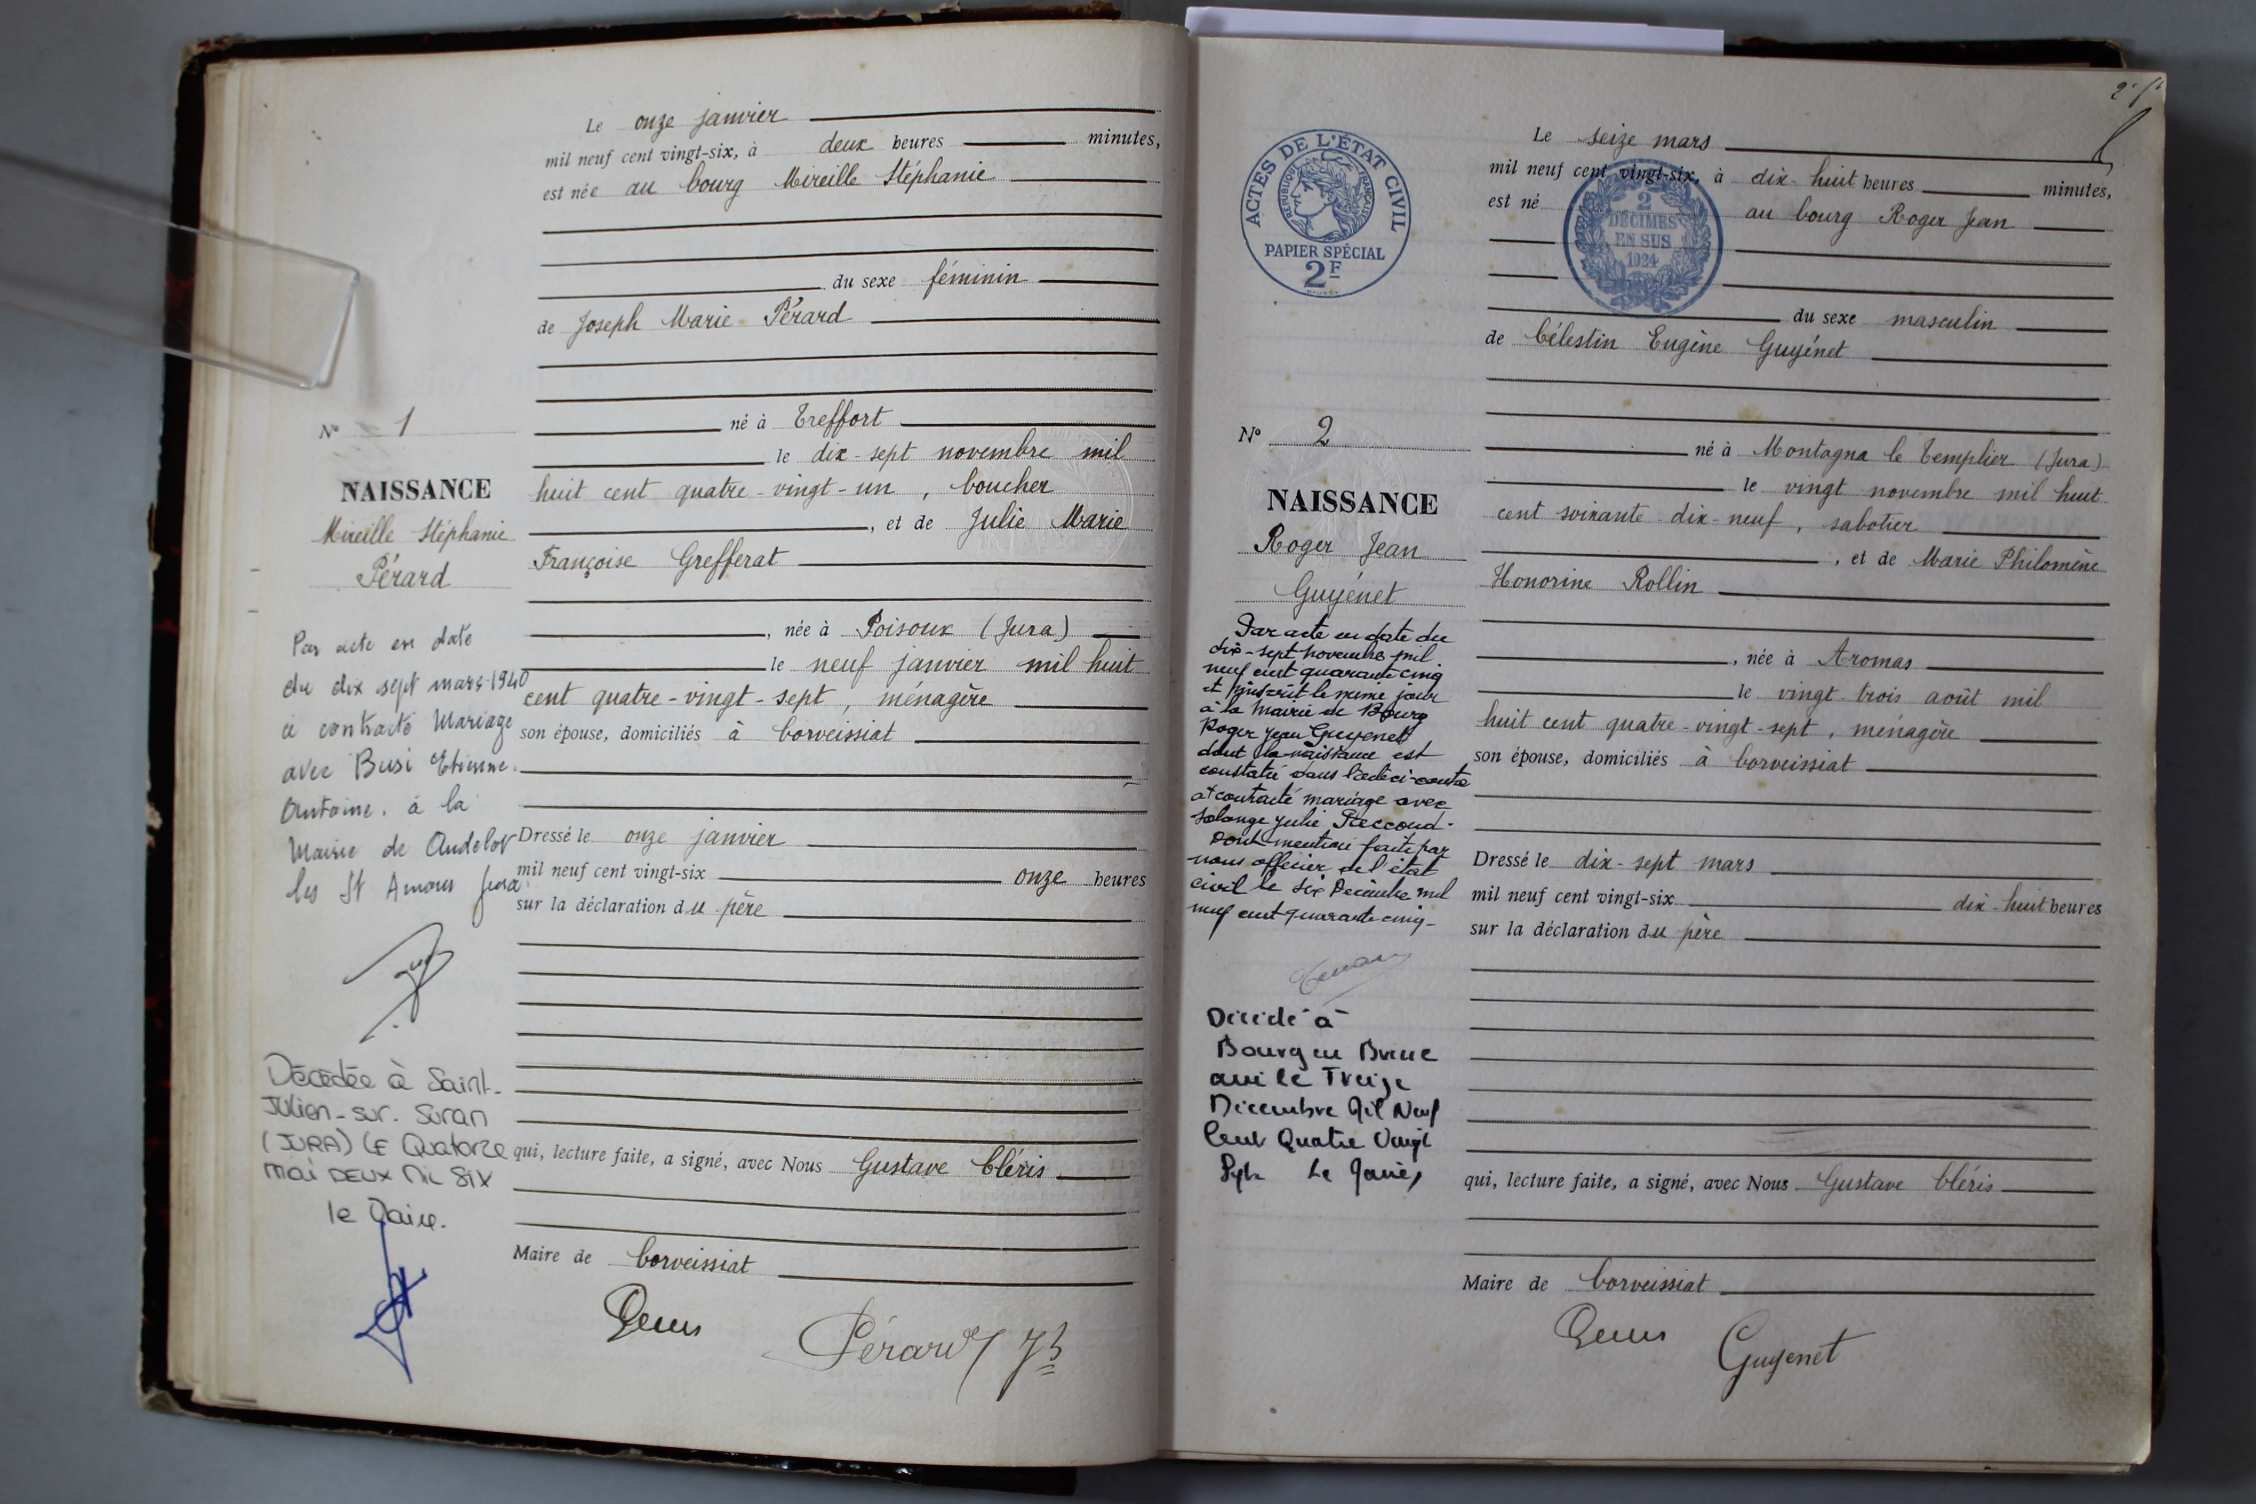 Le onze janvier
mil neuf cent vingt-six, à deux heures minutes,
est née au bourg Mireille Stéphanie
du sexe féminin
de Joseph Marie Pérard
né à Treffort
le dix-sept novembre mil
huit cent quatre-vingt-un, boucher
, et de Julie Marie
Françoise Grefferat
, née à Poisoux (Jura)
le neuf janvier mil huit
cent quatre-vingt-sept, ménagère
son épouse, domiciliés à Corveissiat
Dressé le onze janvier
mil neuf cent vingt-six onze heures
sur la déclaration du père
qui, lecture faite, a signé, avec Nous Gustave Cléris
Maire de Corveissiat
Pérard Jh
N° 1
NAISSANCE
Mireille Stéphanie
Pérard
Par acte en date
du dix sept mars 1940
a contracté Mariage
avec Busi Etienne.
Antoine. à la
Mairie de Andelot
les St Amour Jura
Décédée à Saint-
Julien-sur-Suran
(JURA) LE Quatorze
mai DEUX Mil Six
le Maire.
ACTES DE L'ÉTAT CIVIL
RÉPUBLIQUE FRANÇAISE
PAPIER SPÉCIAL
2F
2
DÉCIMES
EN SUS
1924
Le seize mars
mil neuf cent vingt-six, à dix-huit heures minutes,
est né au bourg Roger Jean
du sexe masculin
de Célestin Eugène Guyénet
né à Montagna le Templier (Jura)
le vingt novembre mil huit
cent soixante-dix-neuf, sabotier
, et de Marie Philomène
Honorine Rollin
, née à Aromas
le vingt-trois août mil
huit cent quatre-vingt-sept, ménagère
son épouse, domiciliés à Corveissiat
Dressé le dix-sept mars
mil neuf cent vingt-six dix-huit heures
sur la déclaration du père
qui, lecture faite, a signé, avec Nous Gustave Cléris
Maire de Corveissiat
Guyenet
N° 2
NAISSANCE
Roger Jean
Guyénet
Par acte en date du
dix-sept novembre mil
neuf cent quarante cinq
et inscrit le même jour
à la Mairie de Bourg
Roger Jean Guyenet
dont la naissance est
constatée dans l'acte ci-contre
a contracté mariage avec
Solange Julie Reccoud.
Dont mention faite par
nous officier de l'état
civil le six Décembre mil
neuf cent quarante cinq-
Décédé à
Bourg en Bresse
Ain le Treize
Décembre Mil Neuf
Cent Quatre Vingt
Sept Le Maire,